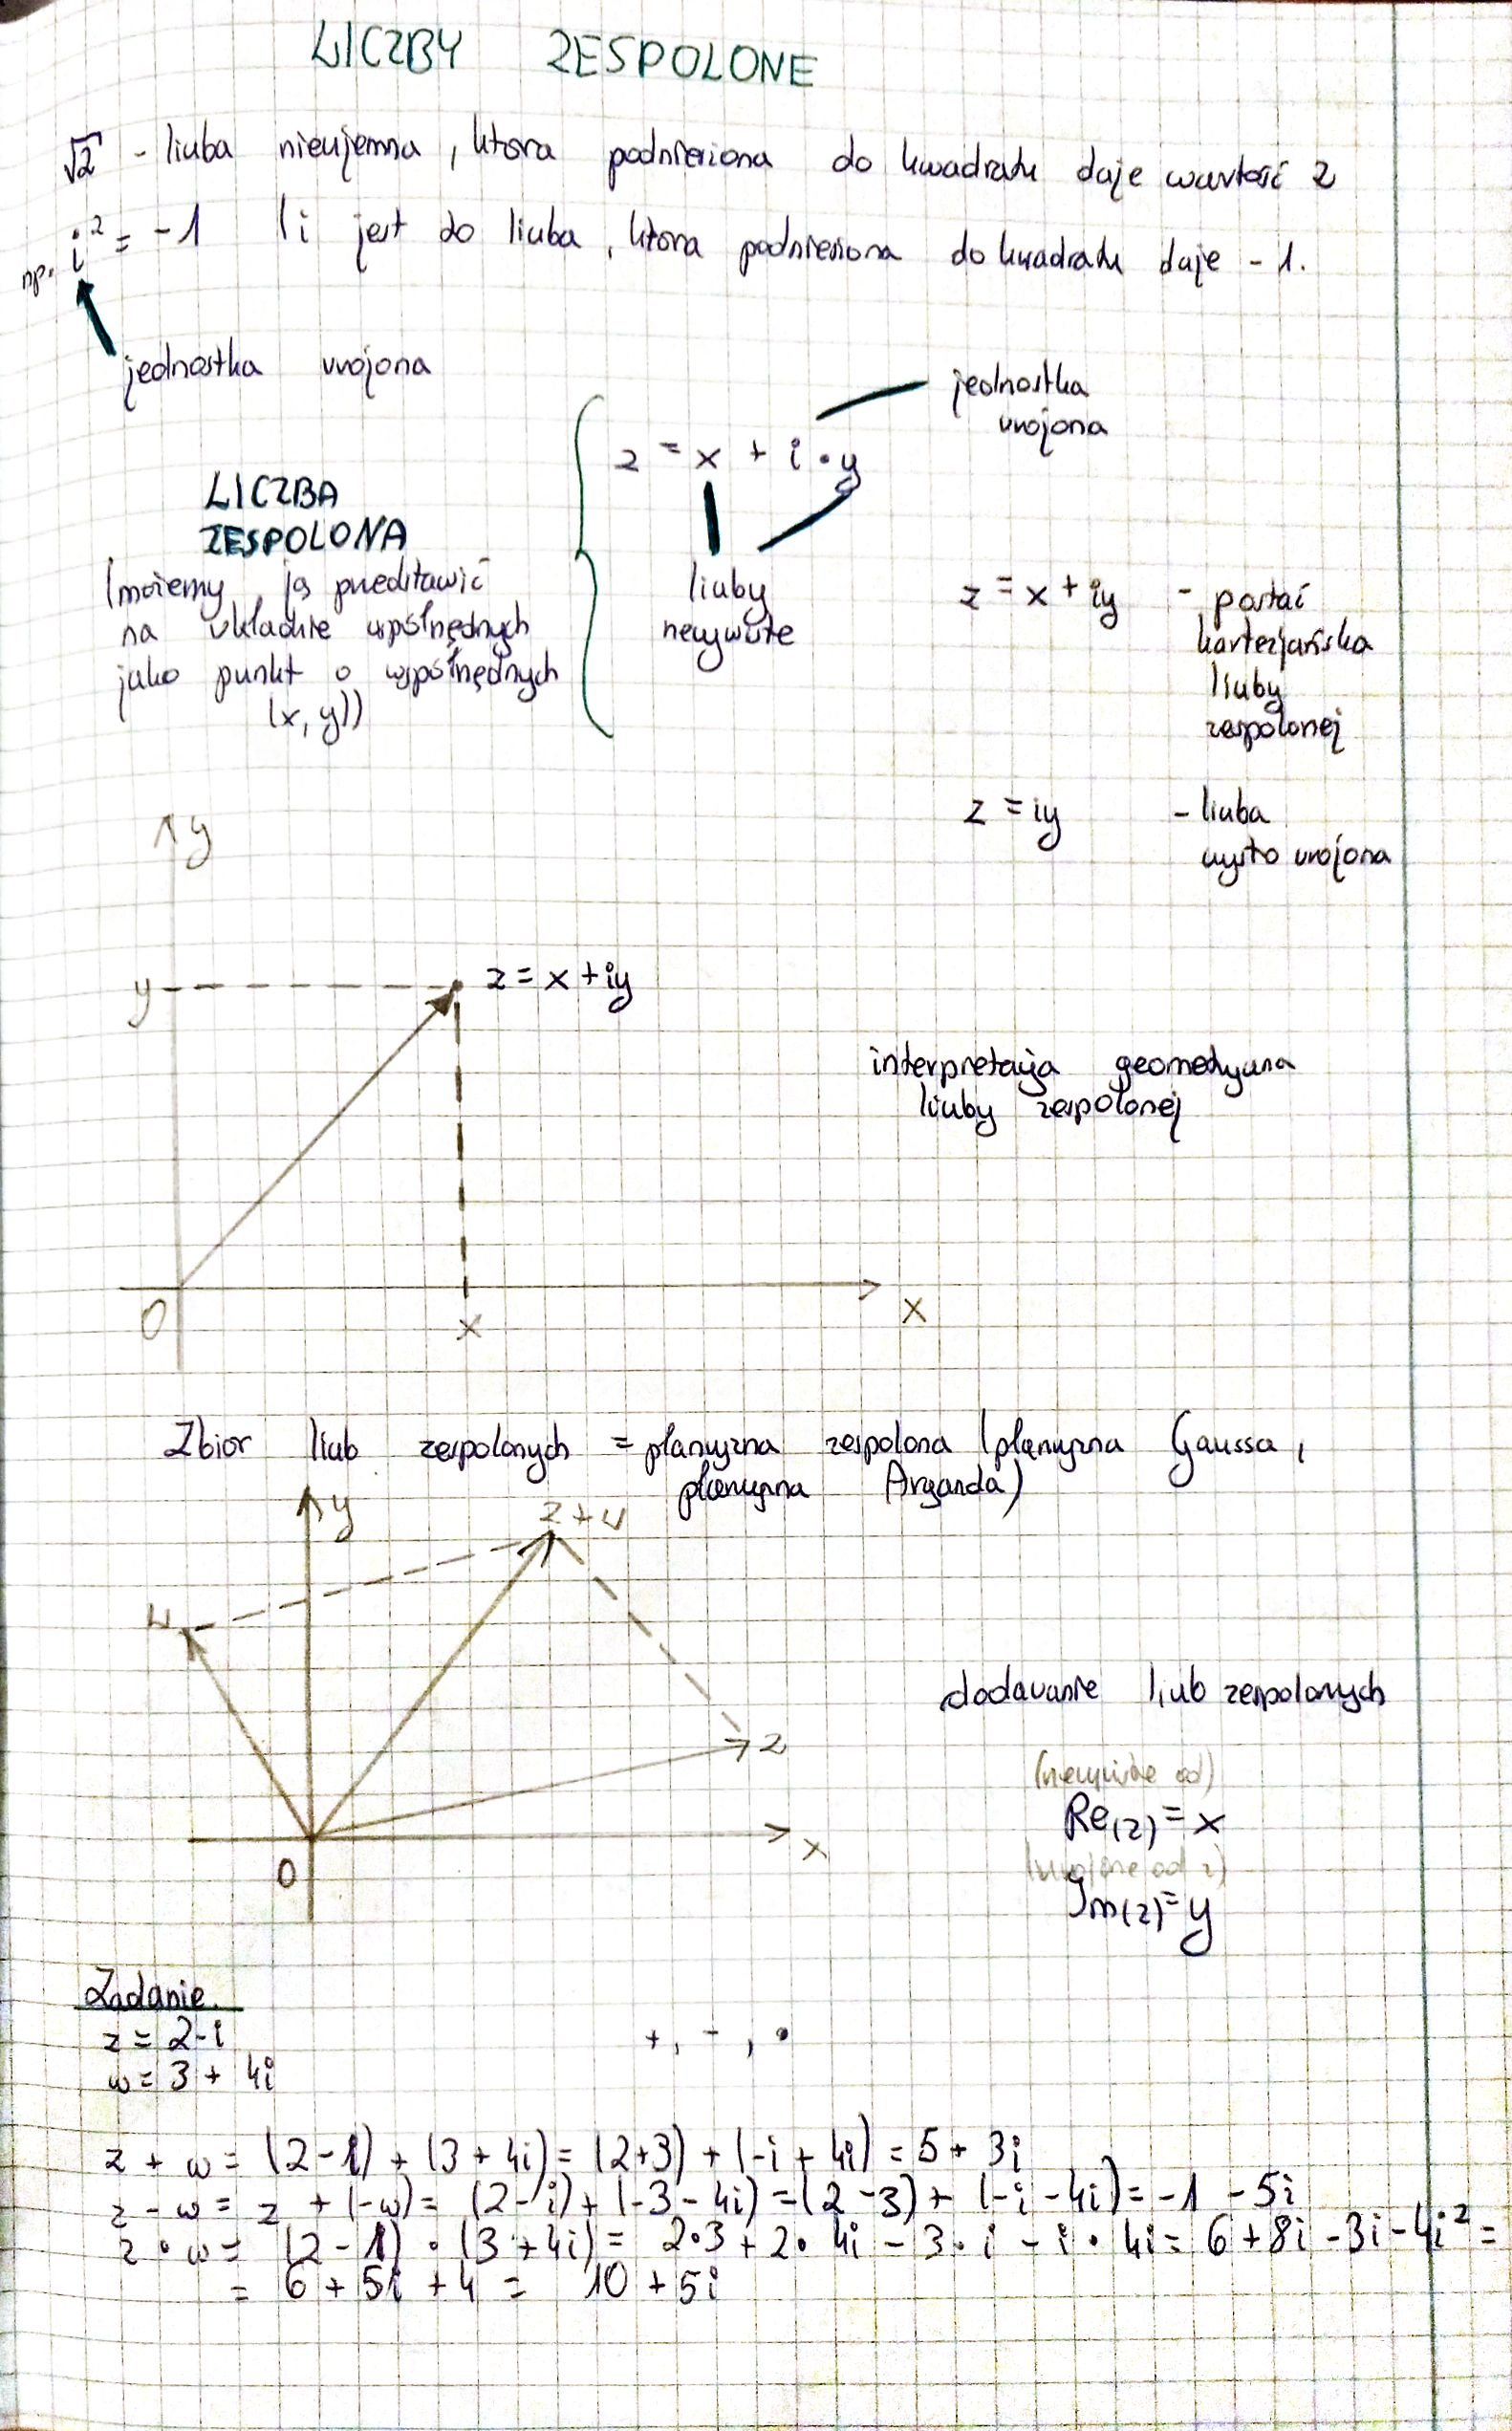 LICZBY ZESPOLONE
√2 - liczba nieujemna, ktora podniesiona do kwadratu daje wartość 2
np. i² = -1 (i jest to liczba, ktora podniesiona do kwadratu daje -1.
jednostka urojona
jednostka
urojona
z = x + i • y
LICZBA
ZESPOLONA
(możemy ją przedstawić
na układzie współrzędnych
jako punkt o współrzędnych
(x, y))
liczby
rzeczywiste
z = x + iy - postać
kartezjańska
liczby
zespolonej
z = iy - liczba
czysto urojona
y
y
z = x + iy
interpretacja geometryczna
liczby zespolonej
0
x
x
Zbior liczb zespolonych = płaszczyzna zespolona (płaszczyzna Gaussa,
płaszczyzna Arganda)
y
z + w
w
dodawanie liczb zespolonych
z
(rzeczywiste od)
Re(z) = x
x
(urojone od z)
0
Im(z) = y
Zadanie.
z = 2-i
+, -, •
w = 3 + 4i
z + w = (2-i) + (3 + 4i) = (2+3) + (-i + 4i) = 5 + 3i
z - w = z + (-w) = (2-i) + (-3 - 4i) = (2-3) + (-i - 4i) = -1 - 5i
z • w = (2 - i) • (3 + 4i) = 2•3 + 2• 4i - 3• i - i • 4i = 6 + 8i - 3i - 4i² =
= 6 + 5i + 4 = 10 + 5i